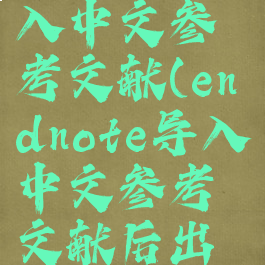 入中文参
考文献(en
dnote导入
中文参考
文献后出